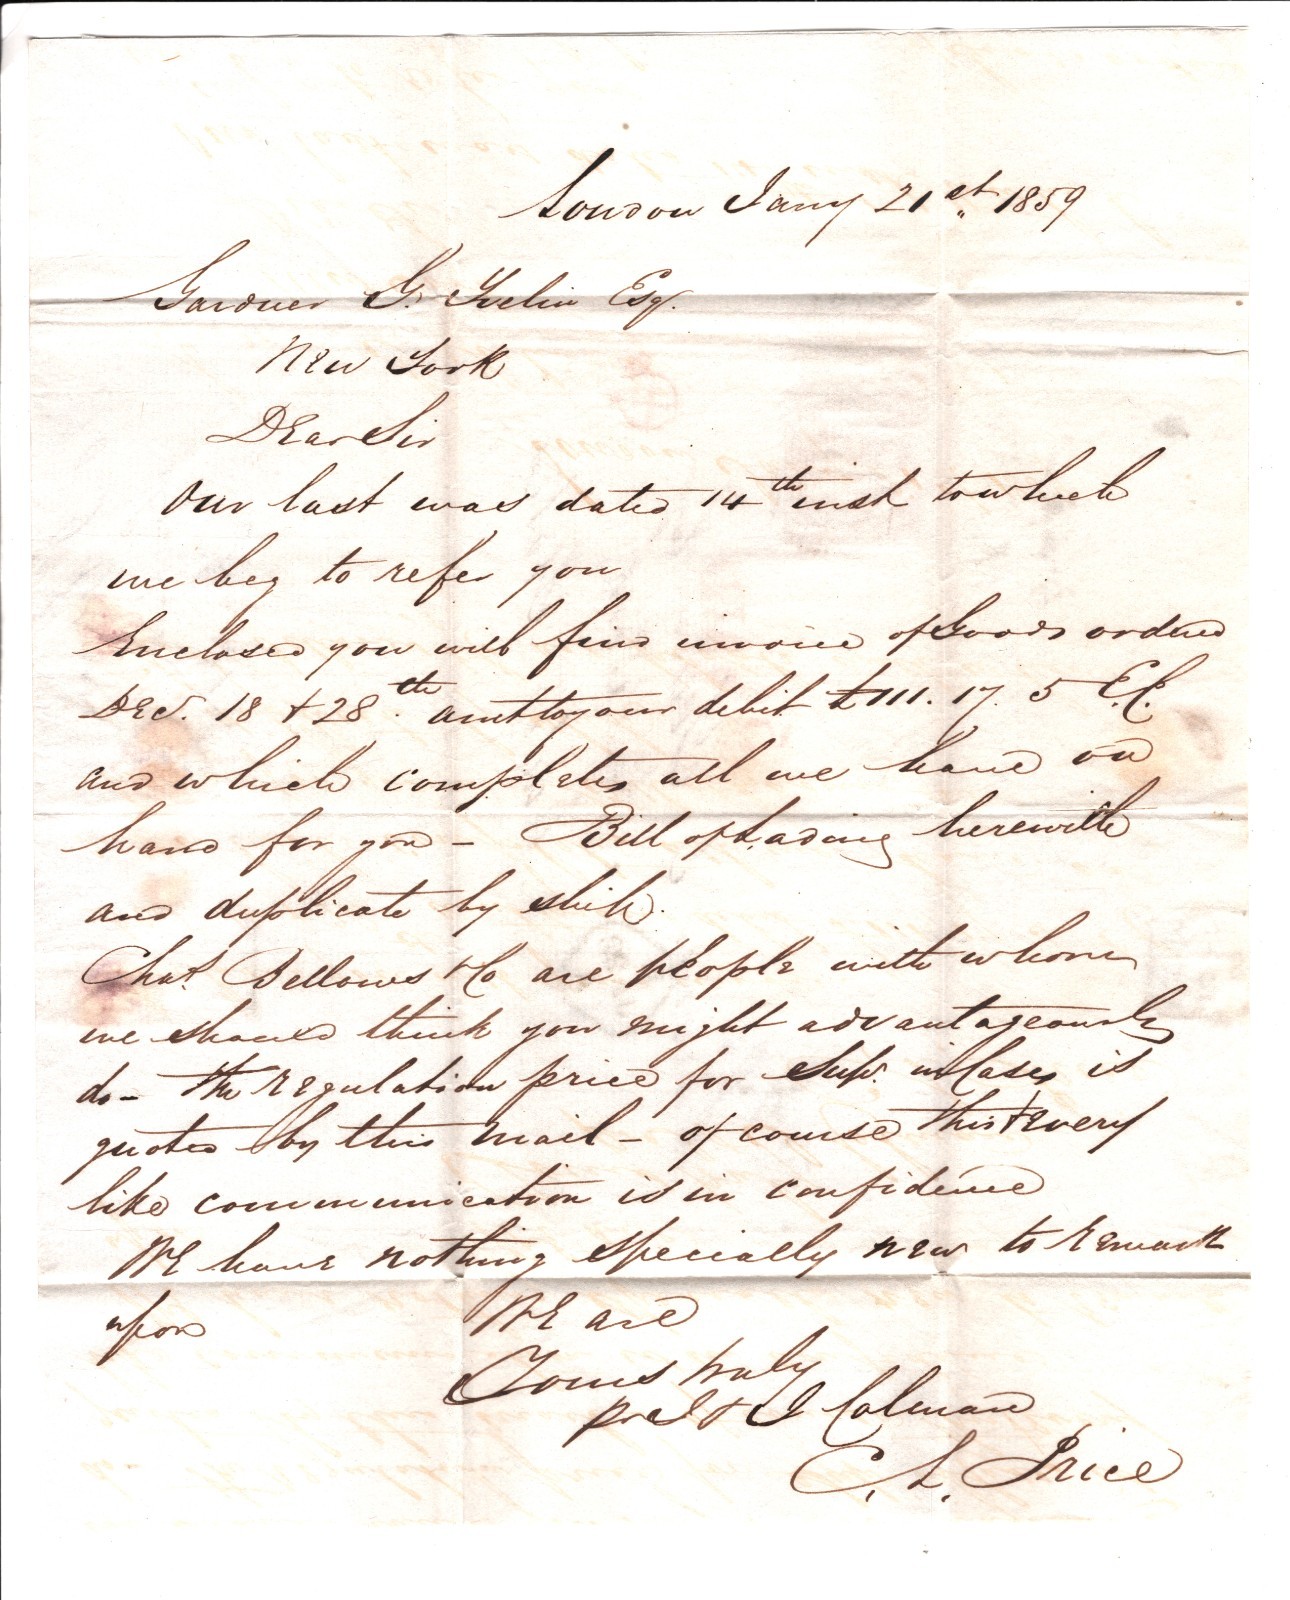 London Jany 21st 1859
Gardner G. Yvelin Esq.
New York
Dear Sir
Our last was dated 14th inst to which
we beg to refer you
Enclosed you will find invoice of Goods ordered
Dec. 18 & 28th. amt to your debit £111. 17. 5 E.E.
and which completes all we have on
hand for you - Bill of Lading herewith
and duplicate by ship.
Chas. Bellows & Co are people with whom
we should think you might advantageously
do - the regulation price for Sup. in Cases is
quoted by this mail - of course this & every
like communication is in confidence
We have nothing specially new to remark
upon We are
Yours truly
pr J & J Colman
C. L. Price